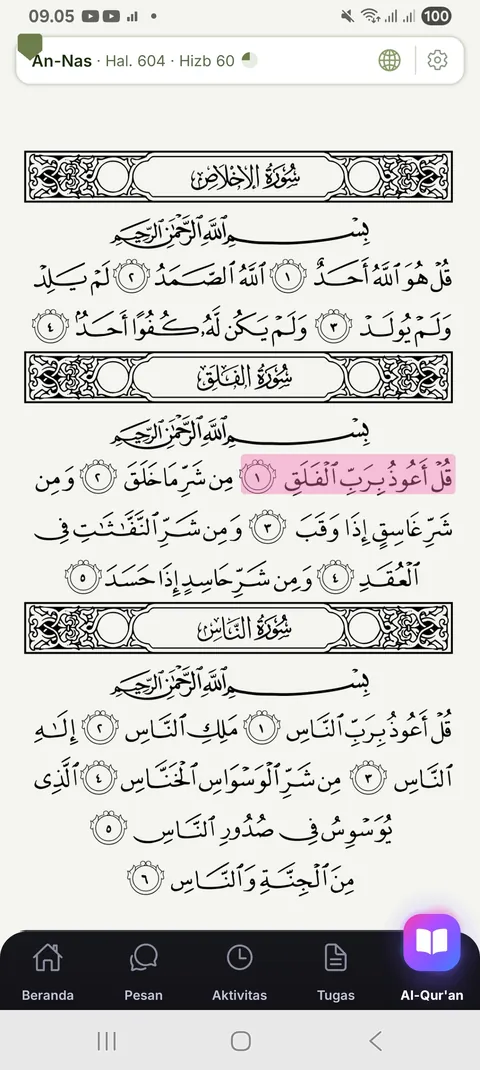 09.05
100
An-Nas · Hal. 604 · Hizb 60
سُورَةُ الإِخْلَاصِ
بِسْمِ اللَّهِ الرَّحْمَٰنِ الرَّحِيمِ
قُلْ هُوَ ٱللَّهُ أَحَدٌ ١ ٱللَّهُ ٱلصَّمَدُ ٢ لَمْ يَلِدْ
وَلَمْ يُولَدْ ٣ وَلَمْ يَكُن لَّهُۥ كُفُوًا أَحَدٌۢ ٤
سُورَةُ الفَلَقِ
بِسْمِ اللَّهِ الرَّحْمَٰنِ الرَّحِيمِ
قُلْ أَعُوذُ بِرَبِّ ٱلْفَلَقِ ١ مِن شَرِّ مَا خَلَقَ ٢ وَمِن
شَرِّ غَاسِقٍ إِذَا وَقَبَ ٣ وَمِن شَرِّ ٱلنَّفَّـٰثَـٰتِ فِى
ٱلْعُقَدِ ٤ وَمِن شَرِّ حَاسِدٍ إِذَا حَسَدَ ٥
سُورَةُ النَّاسِ
بِسْمِ اللَّهِ الرَّحْمَٰنِ الرَّحِيمِ
قُلْ أَعُوذُ بِرَبِّ ٱلنَّاسِ ١ مَلِكِ ٱلنَّاسِ ٢ إِلَـٰهِ
ٱلنَّاسِ ٣ مِن شَرِّ ٱلْوَسْوَاسِ ٱلْخَنَّاسِ ٤ ٱلَّذِى
يُوَسْوِسُ فِى صُدُورِ ٱلنَّاسِ ٥
مِنَ ٱلْجِنَّةِ وَٱلنَّاسِ ٦
Beranda
Pesan
Aktivitas
Tugas
Al-Qur'an